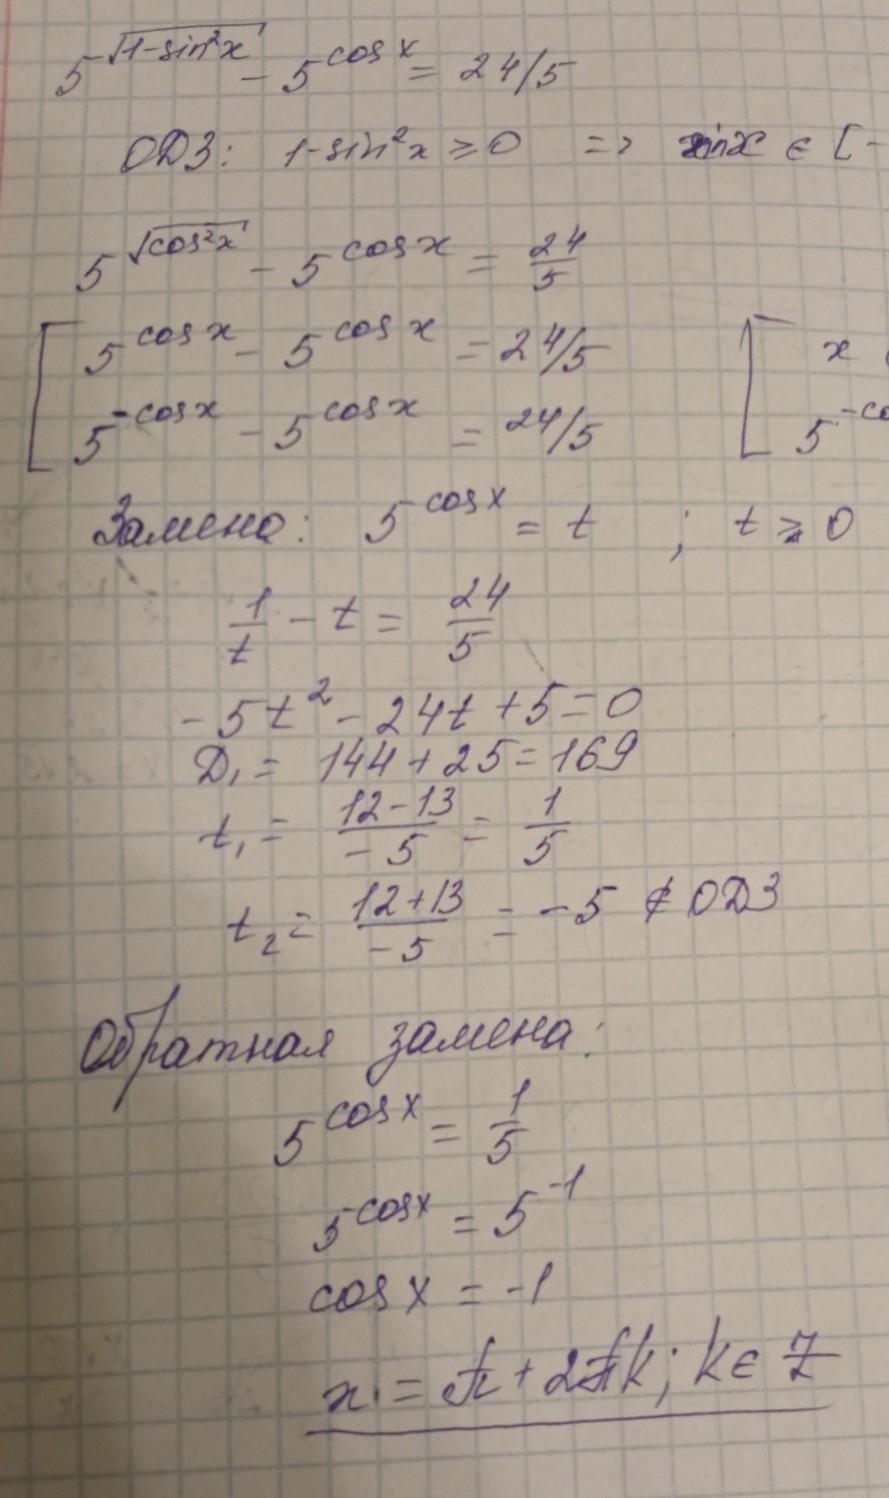 5^√(1-sin²x) - 5^cos x = 24/5
ОДЗ: 1-sin²x ≥ 0 => sinx ∈ [-
5^√(cos²x) - 5^cos x = 24/5
[ 5^cos x - 5^cos x = 24/5 [ x
5^-cos x - 5^cos x = 24/5 5^-co
Замена: 5^cos x = t ; t ≥ 0
1/t - t = 24/5
-5t² - 24t + 5 = 0
D₁ = 144 + 25 = 169
t₁ = (12-13)/(-5) = 1/5
t₂ = (12+13)/(-5) = -5 ∉ ОДЗ
Обратная замена:
5^cos x = 1/5
5^cos x = 5^-1
cos x = -1
x = π + 2πk; k ∈ Z